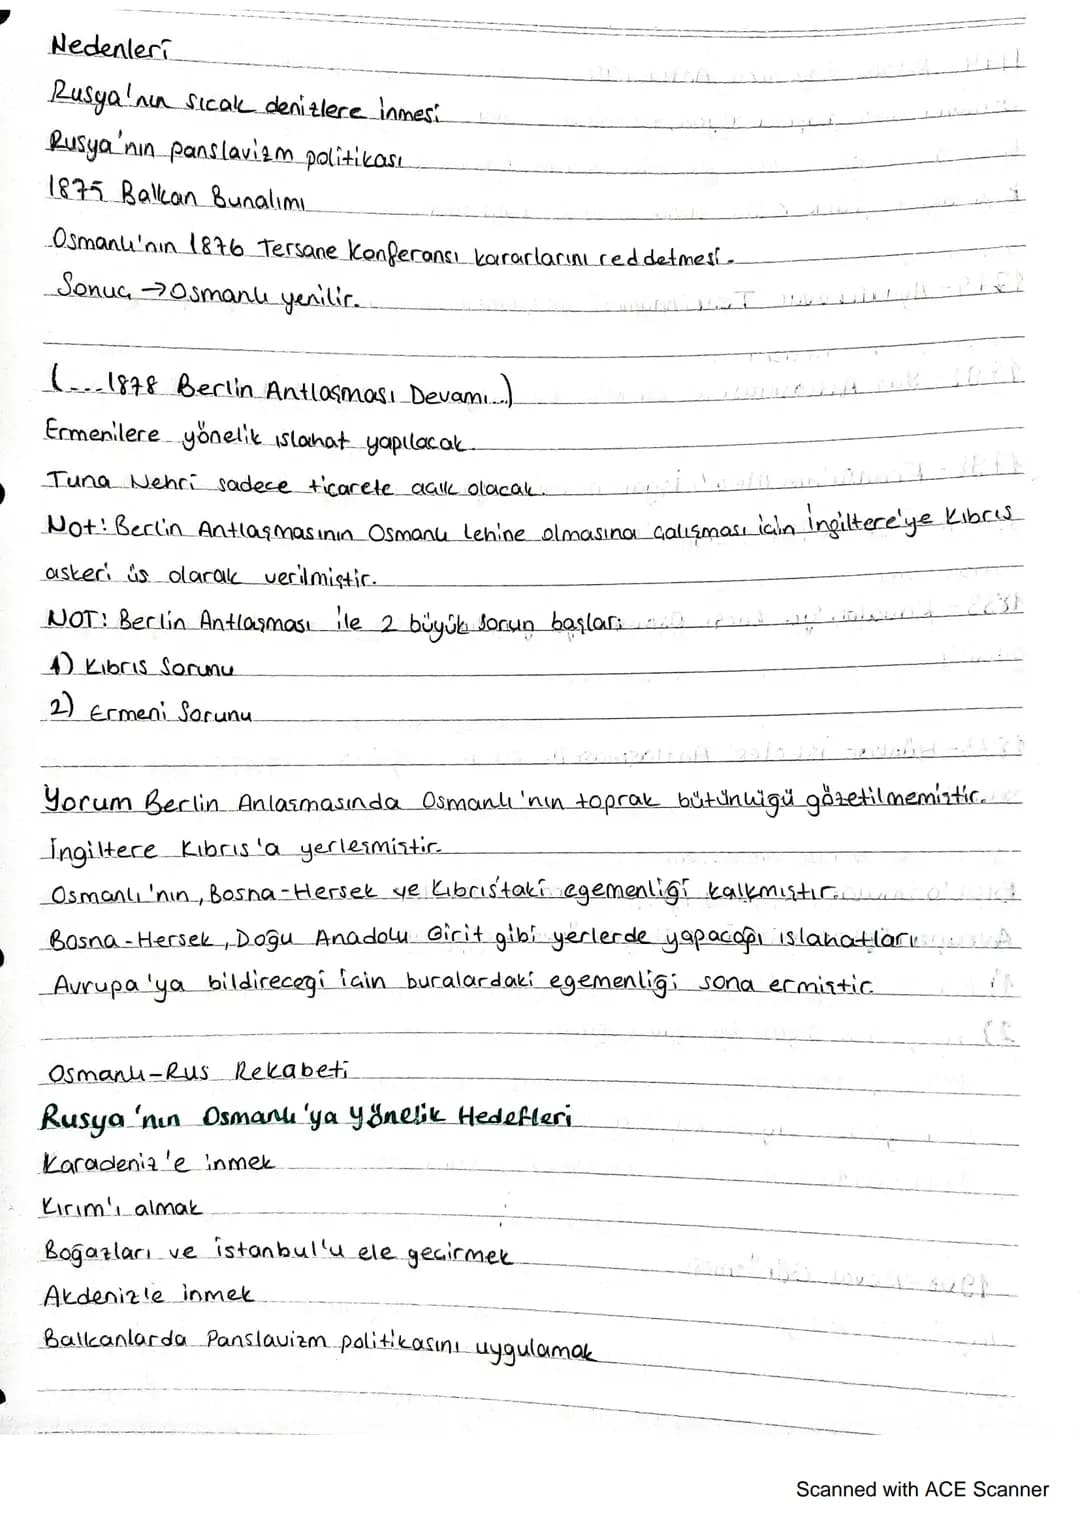 Nedenleri
Rusya'nın sıcak denizlere inmesi
Rusya'nın panslavizm politikası
1875 Balkan Bunalımı
Osmanlı'nın 1876 Tersane Konferansı kararlarını reddetmesi.
Sonuç → Osmanlı yenilir.
(...1878 Berlin Antlaşması Devamı...)
Ermenilere yönelik ıslahat yapılacak.
Tuna Nehri sadece ticarete açık olacak.
Not: Berlin Antlaşmasının Osmanlı lehine olmasına çalışması için İngiltere'ye Kıbrıs
askeri üs olarak verilmiştir.
NOT: Berlin Antlaşması ile 2 büyük sorun başlar:
1) Kıbrıs Sorunu
2) Ermeni Sorunu
Yorum Berlin Anlaşmasında Osmanlı'nın toprak bütünlüğü gözetilmemiştir.
İngiltere Kıbrıs'a yerleşmiştir.
Osmanlı'nın, Bosna-Hersek ve Kıbrıs'taki egemenliği kalkmıştır.
Bosna-Hersek, Doğu Anadolu Girit gibi yerlerde yapacağı ıslahatları
Avrupa'ya bildireceği için buralardaki egemenliği sona ermiştir.
Osmanlı-Rus Rekabeti
Rusya'nın Osmanlı'ya Yönelik Hedefleri
Karadeniz'e inmek
Kırım'ı almak
Boğazları ve İstanbul'u ele geçirmek
Akdeniz'e inmek
Balkanlarda Panslavizm politikasını uygulamak
Scanned with ACE Scanner